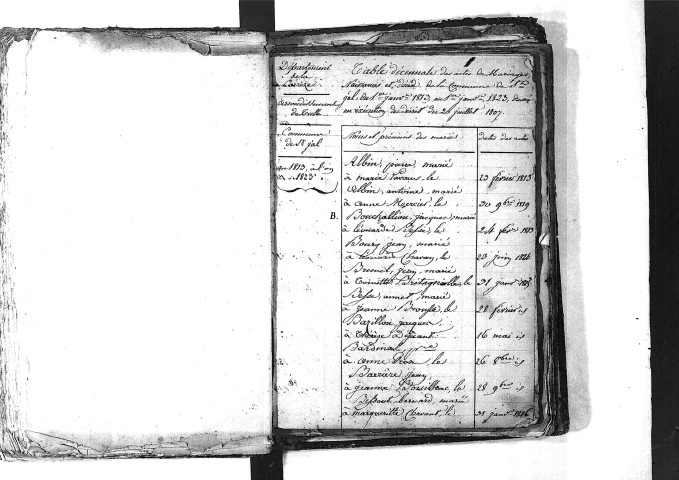 Département
de la
Corrèze
Arrondissement
de Tulle
Commune
de St jal
1813, à l'an
1823.
Table décennale des actes de Mariages,
Naissances et décès de la Commune de St
jal, du 1er janvr 1813, au 1er janvr 1823,
en exécution du décret du 20 juillet 1807.
Noms et prénoms des mariés
dates des actes
Albin, pierre, marié
à marie, le 23 février 1813
Albin, antoine, marié
à anne Mercier, le 30 9bre 1819
B. Bouchallion, jacques, marié
à léonarde Besse, le 24 févr 1813
Bourg jean, marié
à Chavan, le 23 juin 1814
Bresuel, jean, marié
à, le 31 janvr 1815
Besse, annet, marié
à jeanne, le 28 février is
Bazillou, jacques
à 16 mai is
Bardinal, pre
à anne, le 26 8bre is
Barrière jean
à jeanne, le 28 9bre is
Bessout, bernard, marié
à marguerite Chavant, le 31 janvr 1816